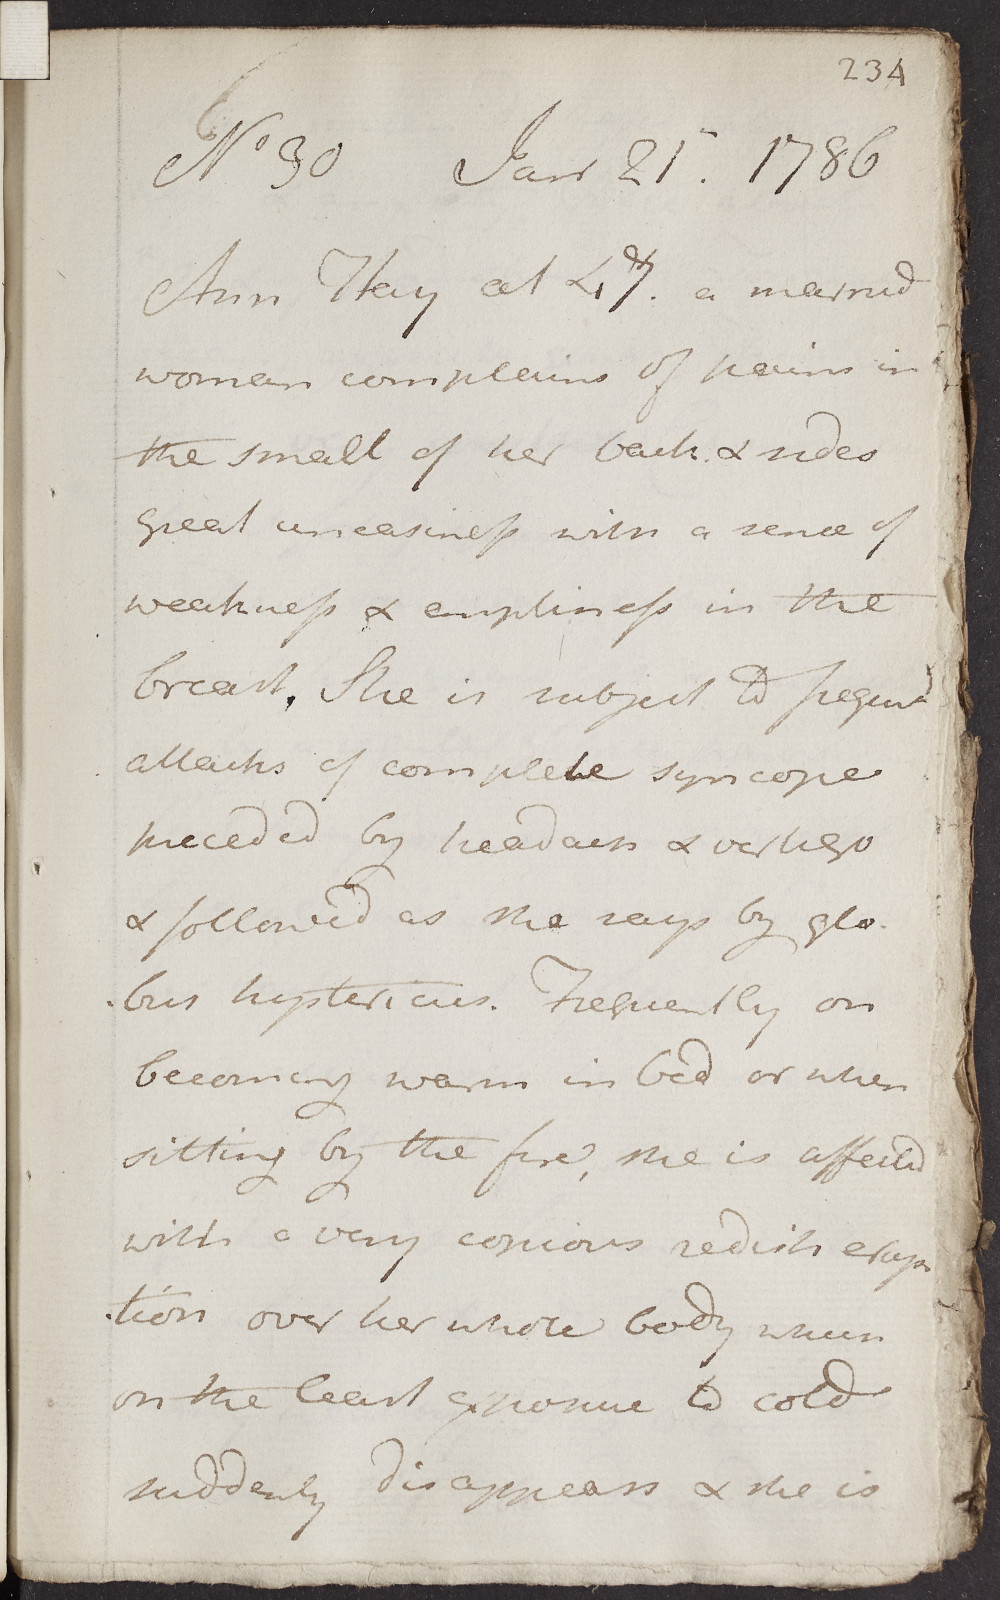 234
No 30 Janr 21. 1786
Ann Hay aet 47. a married
woman complains of pains in
the small of her back & sides
great uneasiness with a sence of
weakness & emptiness in the
breast. She is subject to frequent
attacks of complete syncope
preceded by headach & vertigo
& followed as she says by glo-
-bus hystericus. Frequently on
becoming warm in bed or when
sitting by the fire, she is affected
with a very copious redish erup
-tion over her whole body which
on the least exposure to cold
suddenly disappears & she is